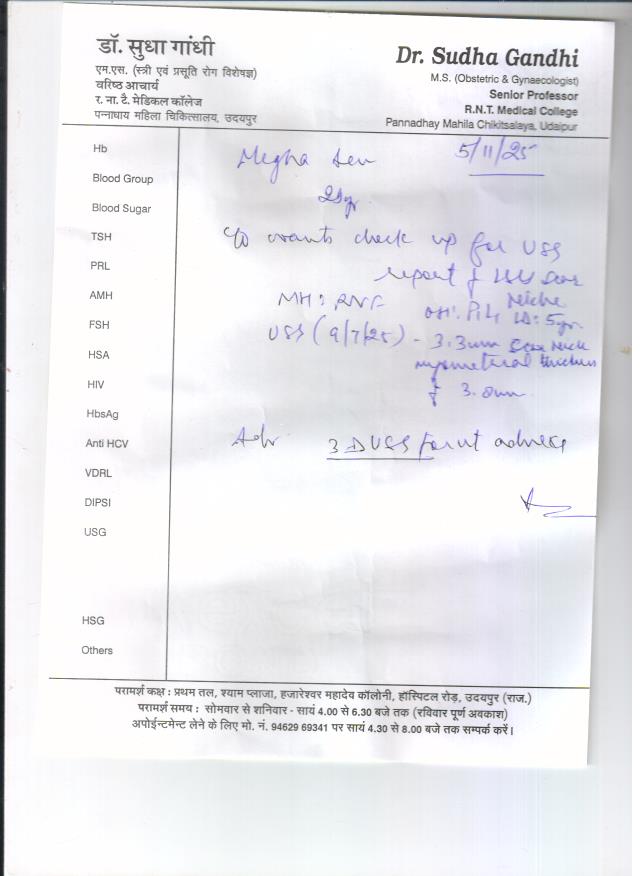 डॉ. सुधा गांधी
एम.एस. (स्त्री एवं प्रसूति रोग विशेषज्ञ)
वरिष्ठ आचार्य
र. ना. टै. मेडिकल कॉलेज
पन्नाधाय महिला चिकित्सालय, उदयपुर
Dr. Sudha Gandhi
M.S. (Obstetric & Gynaecologist)
Senior Professor
R.N.T. Medical College
Pannadhay Mahila Chikitsalaya, Udaipur
Hb
Blood Group
Blood Sugar
TSH
PRL
AMH
FSH
HSA
HIV
HbsAg
Anti HCV
VDRL
DIPSI
USG
HSG
Others
Megha Sen 5/11/25
C/o wants check up for USS
report of scar
niche
MH: OH: P1L1 5yr.
USS (9/7/25) - 3.3mm scar
myometrial thickness
3.0mm
Adv 3D USS
परामर्श कक्ष : प्रथम तल, श्याम प्लाजा, हजारेश्वर महादेव कॉलोनी, हॉस्पिटल रोड़, उदयपुर (राज.)
परामर्श समय : सोमवार से शनिवार - सायं 4.00 से 6.30 बजे तक (रविवार पूर्ण अवकाश)
अपोईन्टमेन्ट लेने के लिए मो. नं. 94629 69341 पर सायं 4.30 से 8.00 बजे तक सम्पर्क करें।